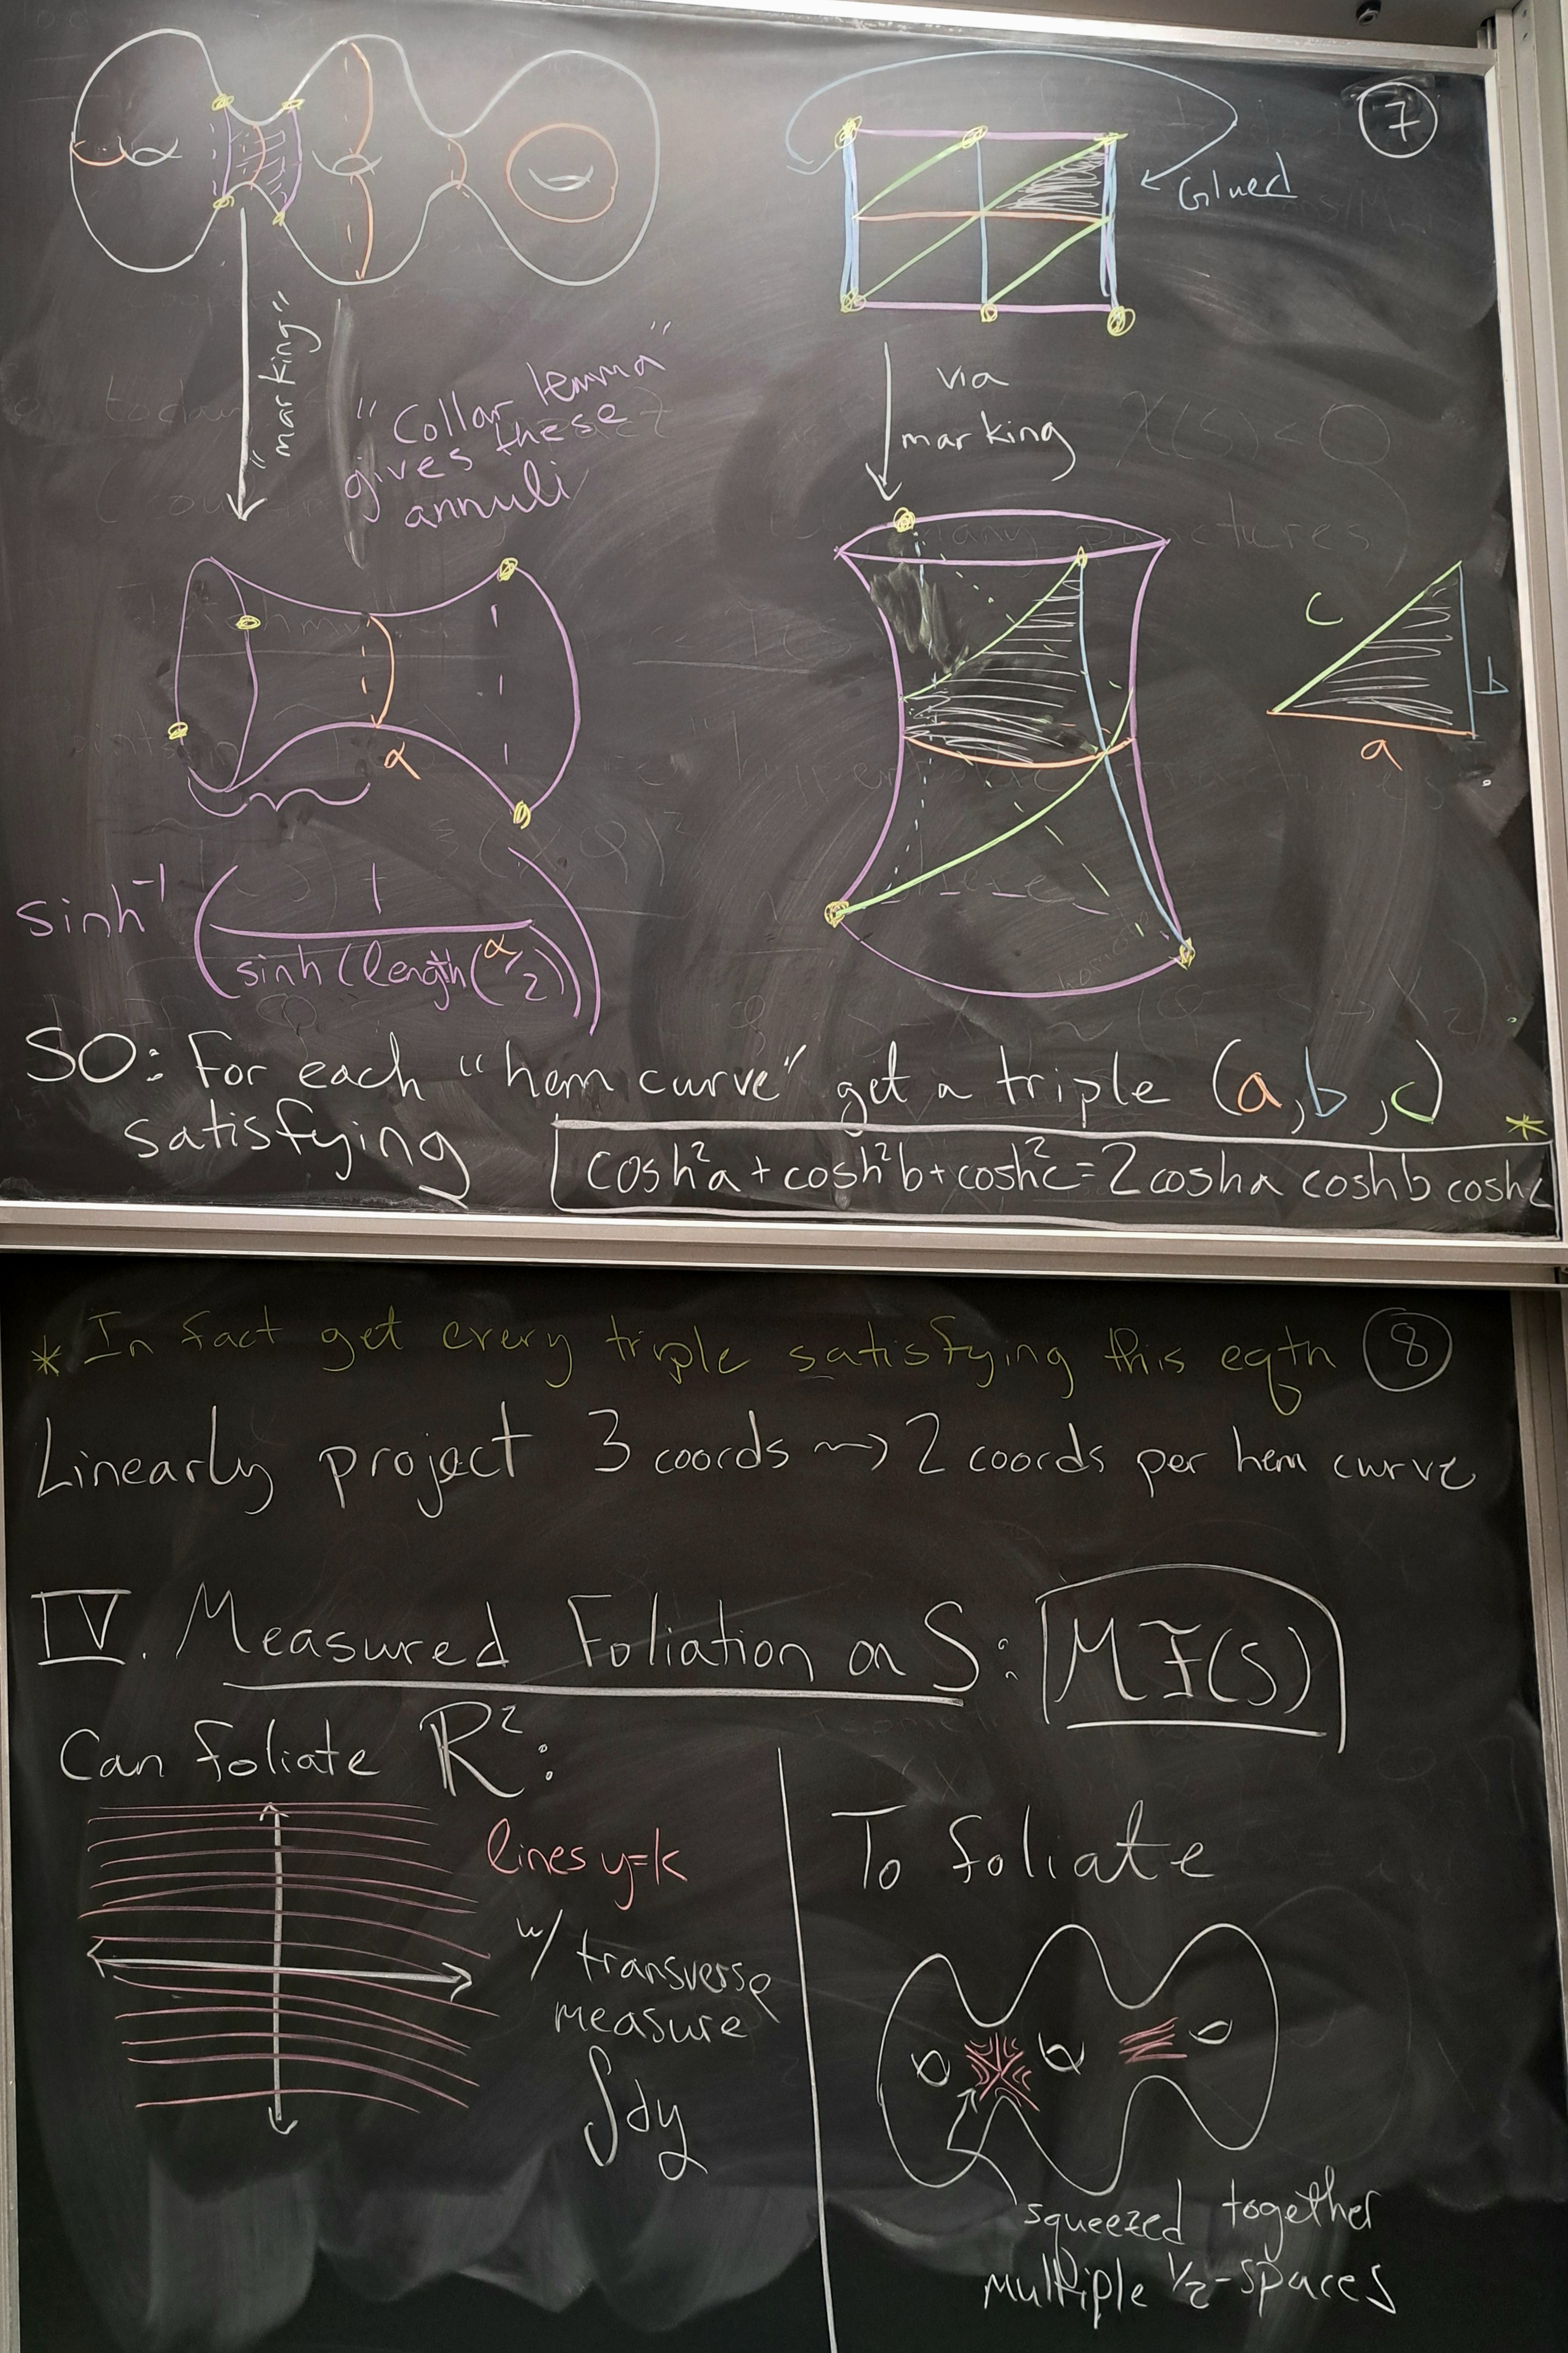 ⑦
Glued
"marking"
"Collar lemma"
gives these
annuli
via
marking
α
c
b
a
sinh⁻¹ ( 1 / sinh(length(α/2)) )
SO: For each "hem curve" get a triple (a,b,c)
satisfying
cosh²a + cosh²b + cosh²c = 2 cosha coshb coshc
*
* In fact get every triple satisfying this eqtn ⑧
Linearly project 3 coords ⇝ 2 coords per hem curve
IV. Measured Foliation on S: MF(S)
Can foliate ℝ²:
lines y=k
w/ transverse
measure
∫dy
To foliate
squeezed together
multiple ½-spaces